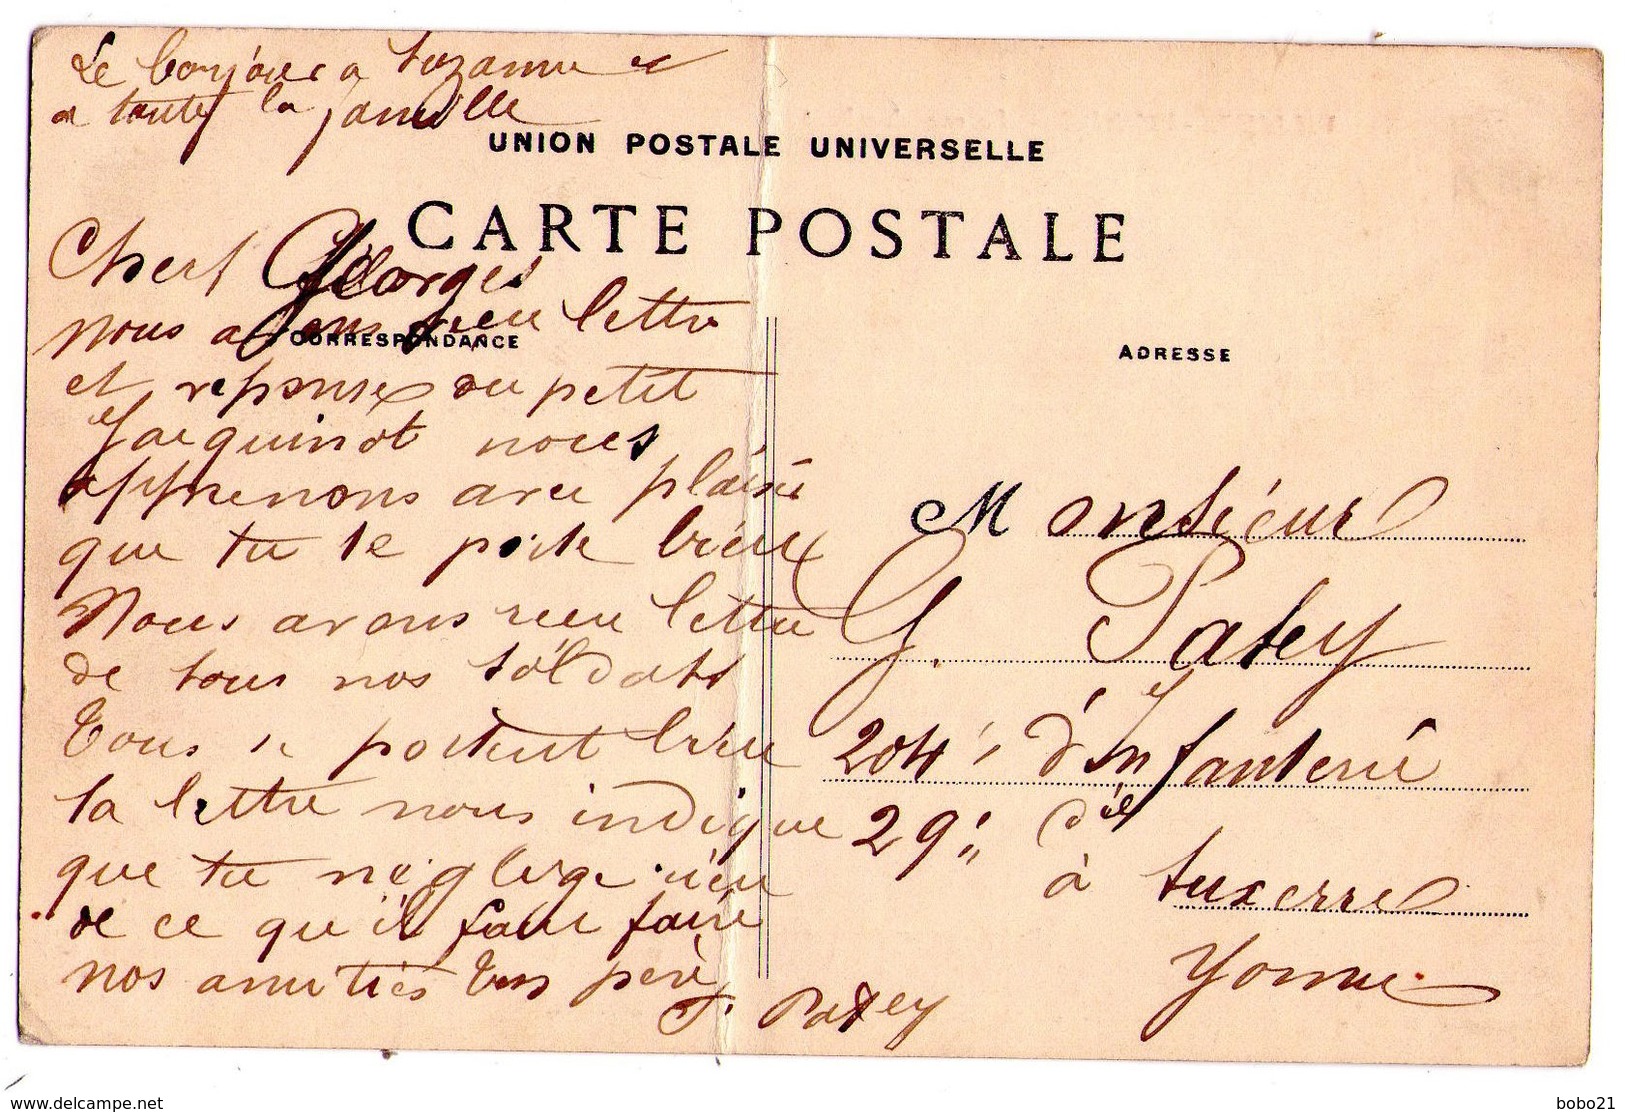 Le bonjour a Suzanne et
a toute la famille
UNION POSTALE UNIVERSELLE
CARTE POSTALE
Chert Georges
nous avons reçu lettre
CORRESPONDANCE
ADRESSE
et reponse du petit
Jacquinot nous
apprenons avec plaisir
que tu te porte bien
Nous avons reçu lettre
de tous nos soldats
Tous se portent bien
ta lettre nous indique
que tu néglige rien
de ce qu'il faut faire
nos amitiés Ton père
P. Patey
Monsieur
G. Patey
204e d'Infanterie
29e Cie
à Auxerre
Yonne
www.delcampe.net
bobo21